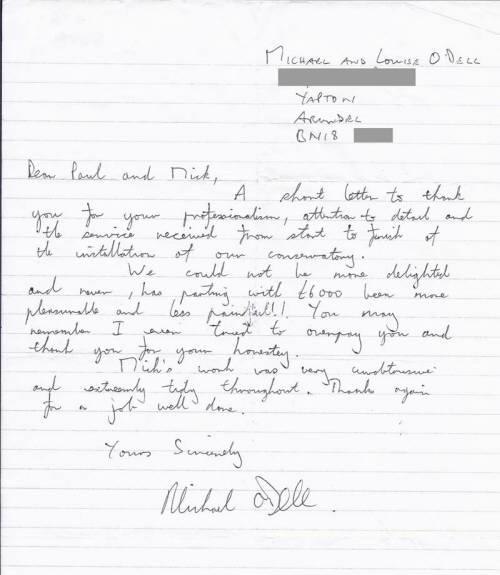 MICHAEL AND LOUISE O'DELL
YAPTON
ARUNDEL
BN18
Dear Paul and Mick,
A short letter to thank
you for your professionalism, attention to detail and
the service received from start to finish of
the installation of our conservatory.
We could not be more delighted
and never, has parting with £6000 been more
pleasurable and less painful!!. You may
remember I even tried to overpay you and
thank you for your honestey.
Mick's work was very unobtrusive
and extreemly tidy throughout. Thanks again
for a job well done.
Yours Sincerely
Michael O'Dell.